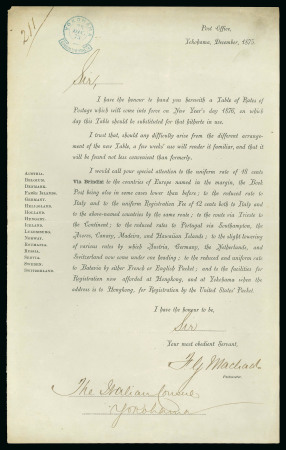 211
Post Office,
Yokohama, December, 1875.
Sir,
I have the honour to hand you herewith a Table of Rates of
Postage which will come into force on New Year's day 1876, on which
day this Table should be substituted for that hitherto in use.
I trust that, should any difficulty arise from the different arrange-
ment of the new Table, a few weeks' use will render it familiar, and that it
will be found not less convenient than formerly.
I would call your special attention to the uniform rate of 16 cents
Via Brindisi to the countries of Europe named in the margin, the Book
Post being also in some cases lower than before; to the reduced rate to
Italy and to the uniform Registration Fee of 12 cents both to Italy and
to the above-named countries by the same route; to the route via Trieste to
the Continent; to the reduced rates to Portugal via Southampton, the
Azores, Canary, Madeira, and Hawaiian Islands; to the slight lowering
of various rates by which Austria, Germany, the Netherlands, and
Switzerland now come under one heading; to the reduced and uniform rate
to Batavia by either French or English Packet; and to the facilities for
Registration now afforded at Hongkong, and at Yokohama when the
address is to Hongkong, for Registration by the United States' Packet.
Austria.
Belgium.
Denmark.
Faröe Islands.
Germany.
Heligoland.
Holland.
Hungary.
Iceland.
Luxemburg.
Norway.
Roumania.
Russia.
Servia.
Sweden.
Switzerland.
I have the honour to be,
Sir
Your most obedient Servant,
F G Machado
Postmaster.
The Italian Consul
Yokohama